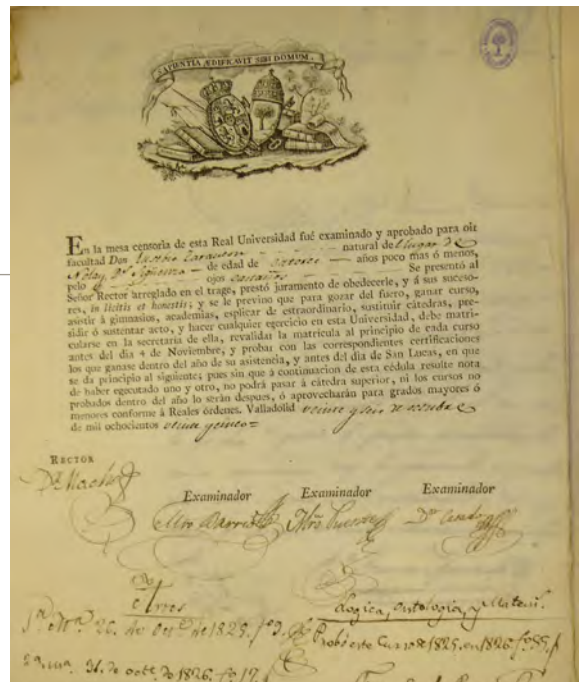 SAPIENTIA ÆDIFICAVIT SIBI DOMUM.
En la mesa censoria de esta Real Universidad fué examinado y aprobado para oir
facultad Don natural de lugar de
de edad de catorce años poco mas ó ménos,
pelo ojos castaños Se presentó al
Señor Rector arreglado en el trage, prestó juramento de obedecerle, y á sus suceso-
res, in licitis et honestis; y se le previno que para gozar del fuero, ganar curso,
asistir á gimnasios, academias, esplicar de estraordinario, sustituir cátedras, pre-
sidir ó sustentar acto, y hacer cualquier egercicio en esta Universidad, debe matri-
cularse en la secretaría de ella, revalidar la matrícula al principio de cada curso
antes del dia 4 de Noviembre, y probar con las correspondientes certificaciones
los que ganase dentro del año de su asistencia, y antes del dia de San Lucas, en que
se da principio al siguiente; pues sin que á continuacion de esta cédula resulte nota
de haber egecutado uno y otro, no podrá pasar á cátedra superior, ni los cursos no
probados dentro del año lo serán despues, ó aprovecharán para grados mayores ó
menores conforme á Reales órdenes. Valladolid veinte y seis de octubre
de mil ochocientos veinte y cinco =
RECTOR
Examinador Examinador Examinador
Logica, ontologia, y Matem.
26. de de 1825. Probó este Curso de 1825. en 1826.
31. de oct.e de 1826. fo 17.